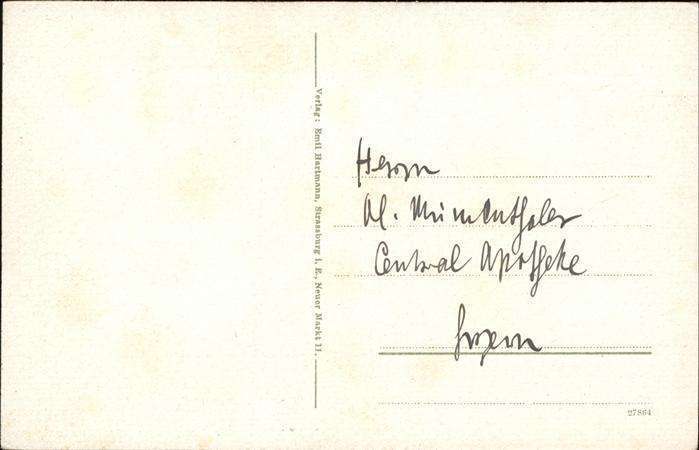 Verlag: Emil Hartmann, Strassburg i. E., Neuer Markt 11.
Herrn
Al. Mumenthaler
Central Apotheke
Luzern
27864